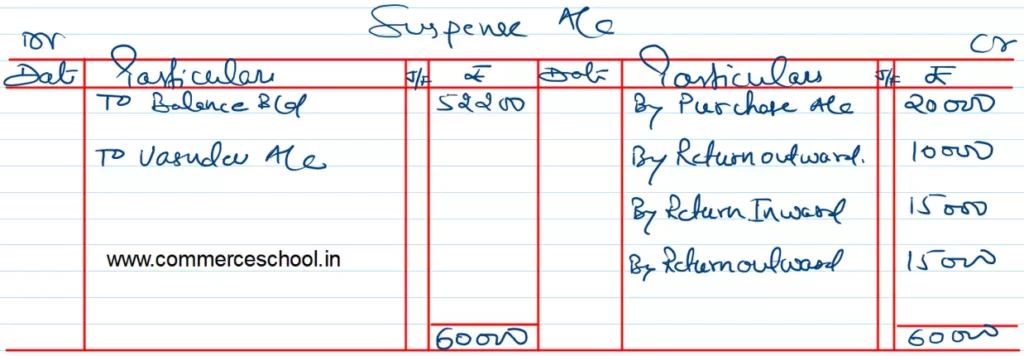 Suspense A/c
Dr Cr
Date Particulars J/F ₹ Date Particulars J/F ₹
To Balance B/d 52200 By Purchase A/c 20000
To Vasudev A/c By Return outward. 10000
By Return Inward 15000
www.commerceschool.in By Return outward 15000
60000 60000